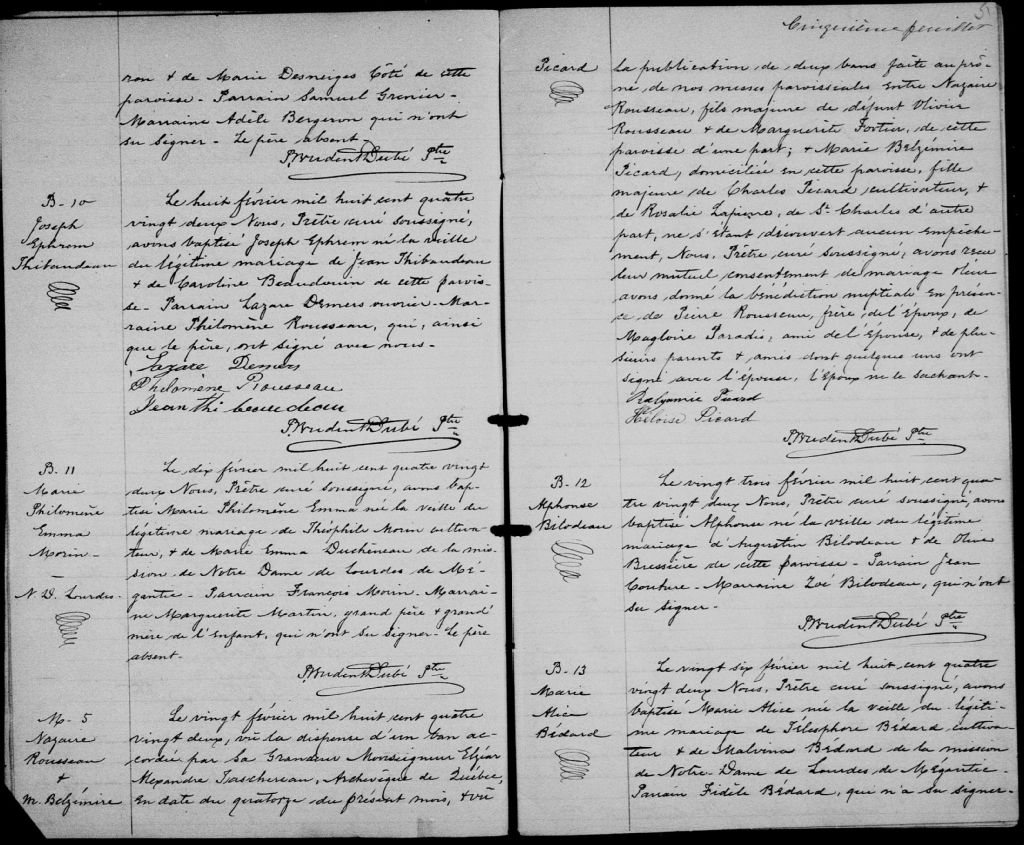 ron & de Marie Desneiges Côté de cette
paroisse - Parrain Samuel Grenier -
Marraine Adèle Bergeron qui n'ont
su signer - Le père absent -
Prudent Dubé Ptre
B - 10
Joseph
Ephrem
Thibaudeau
Le huit février mil huit cent quatre
vingt deux Nous, Prêtre curé soussigné,
avons baptisé Joseph Ephrem né la veille
du légitime mariage de Jean Thibaudeau
& de Caroline Beaudouin de cette parois-
se - Parrain Lazare Demers ouvrier - Mar-
raine Philomène Rousseau, qui, ainsi
que le père, ont signé avec nous -
Lazare Demers
Philomène Rousseau
Jean Thibeaudeau
Prudent Dubé Ptre
B - 11
Marie
Philomène
Emma
Morin -
N. D. Lourdes -
Le dix février mil huit cent quatre vingt
deux Nous, Prêtre curé soussigné, avons bap-
tisé Marie Philomène Emma né la veille du
légitime mariage de Théophile Morin cultiva-
teur, & de Marie Emma Duchéneau de la mis-
sion de Notre Dame de Lourdes de Mé-
gantic - Parrain François Morin - Marrai-
ne Marguerite Martin, grand père & grand'
mère de l'Enfant, qui n'ont su signer - Le père
absent -
Prudent Dubé Ptre
M - 5
Nazaire
Rousseau
&
M. Belzémire
Le vingt février mil huit cent quatre
vingt deux, vû la dispense d'un ban ac-
cordée par Sa Grandeur Monseigneur Elzéar
Alexandre Taschereau, Archevêque de Québec,
En date du quatorze du présent mois, & vû
5
Cinquième feuillet
Picard
la publication de deux bans faite au prô-
ne de nos messes paroissiales entre Nazaire
Rousseau, fils majeure de défunt Olivier
Rousseau & de Marguerite Fortier, de cette
paroisse d'une part; & Marie Belzémire
Picard, domiciliée en cette paroisse, fille
majeure de Charles Picard cultivateur, &
de Rosalie Lapierre, de St Charles d'autre
part, ne s'étant découvert aucun empêche-
ment, Nous, Prêtre curé soussigné, avons reçu
leur mutuel consentement de mariage & leur
avons donné la bénédiction nuptiale En présen-
ce de Pierre Rousseau, frère, de l'Epoux, de
Magloire Paradis, ami de l'épouse, & de plu-
sieurs parents & amis dont quelques uns ont
signé avec l'épouse, l'époux ne le sachant -
Picard
Héloïse Picard
Prudent Dubé Ptre
B - 12
Alphonse
Bilodeau
Le vingt trois février mil huit cent qua-
tre vingt deux Nous, Prêtre curé soussigné, avons
baptisé Alphonse né la veille du légitime
mariage d'Augustin Bilodeau & de Olive
Bussière de cette paroisse - Parrain Jean
Couture - Marraine Zoé Bilodeau, qui n'ont
su signer -
Prudent Dubé Ptre
B - 13
Marie
Alice
Bédard
Le vingt six février mil huit cent quatre
vingt deux Nous, Prêtre curé soussigné, avons
baptisé Marie Alice née la veille du légiti-
me mariage de Télesphore Bédard cultiva-
teur & de Malvina Bédard de la mission
de Notre-Dame de Lourdes de Mégantic -
Parrain Fidèle Bédard, qui n'a su signer -